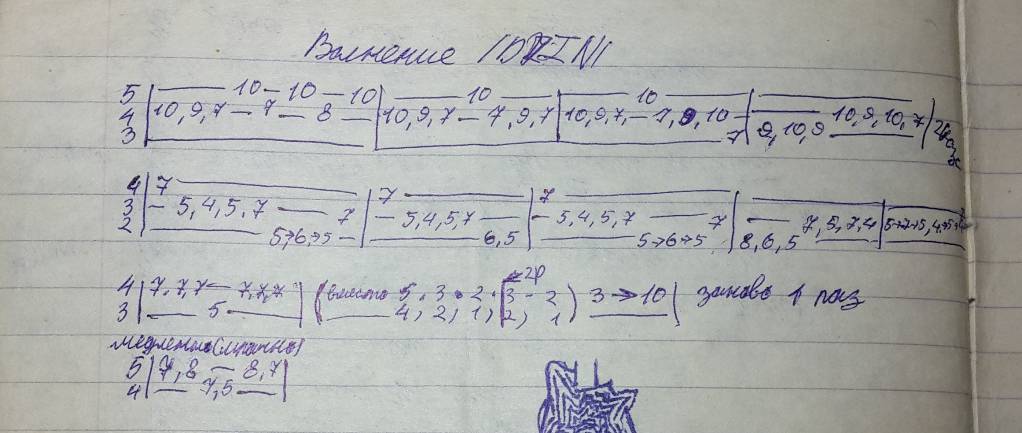 Волнение
5 | 10 — 10 — 10 | 10 | 10 |
4 | 10, 9, 7 — 7 — 8 — | 10, 9, 7 — 7, 9, 7 | 10, 9, 7, — 7, 9, 10 — | 10, 9, 10, 7 | 2 раза
3 | | | 7 | 9, 10, 9
4 | 7 | 7 | 7 |
3 | — 5, 4, 5, 7 — 7 | — 5, 4, 5, 7 — | — 5, 4, 5, 7 — 7 | — 7, 5, 7, 4 |
2 | 5→6→5 — | 6, 5 | 5→6→5 | 8, 6, 5 |
4 | 7, 7, 7 — 7, 7, 7 | (вместо 5, 3, 2, 3 - 2) 3 → 10 | заново 1 раз
3 | — 5 — | 4, 2, 1, 2, 1
2р
медленно (мрачно)
5 | 7, 8 — 8, 7 |
4 | — 7, 5 — |